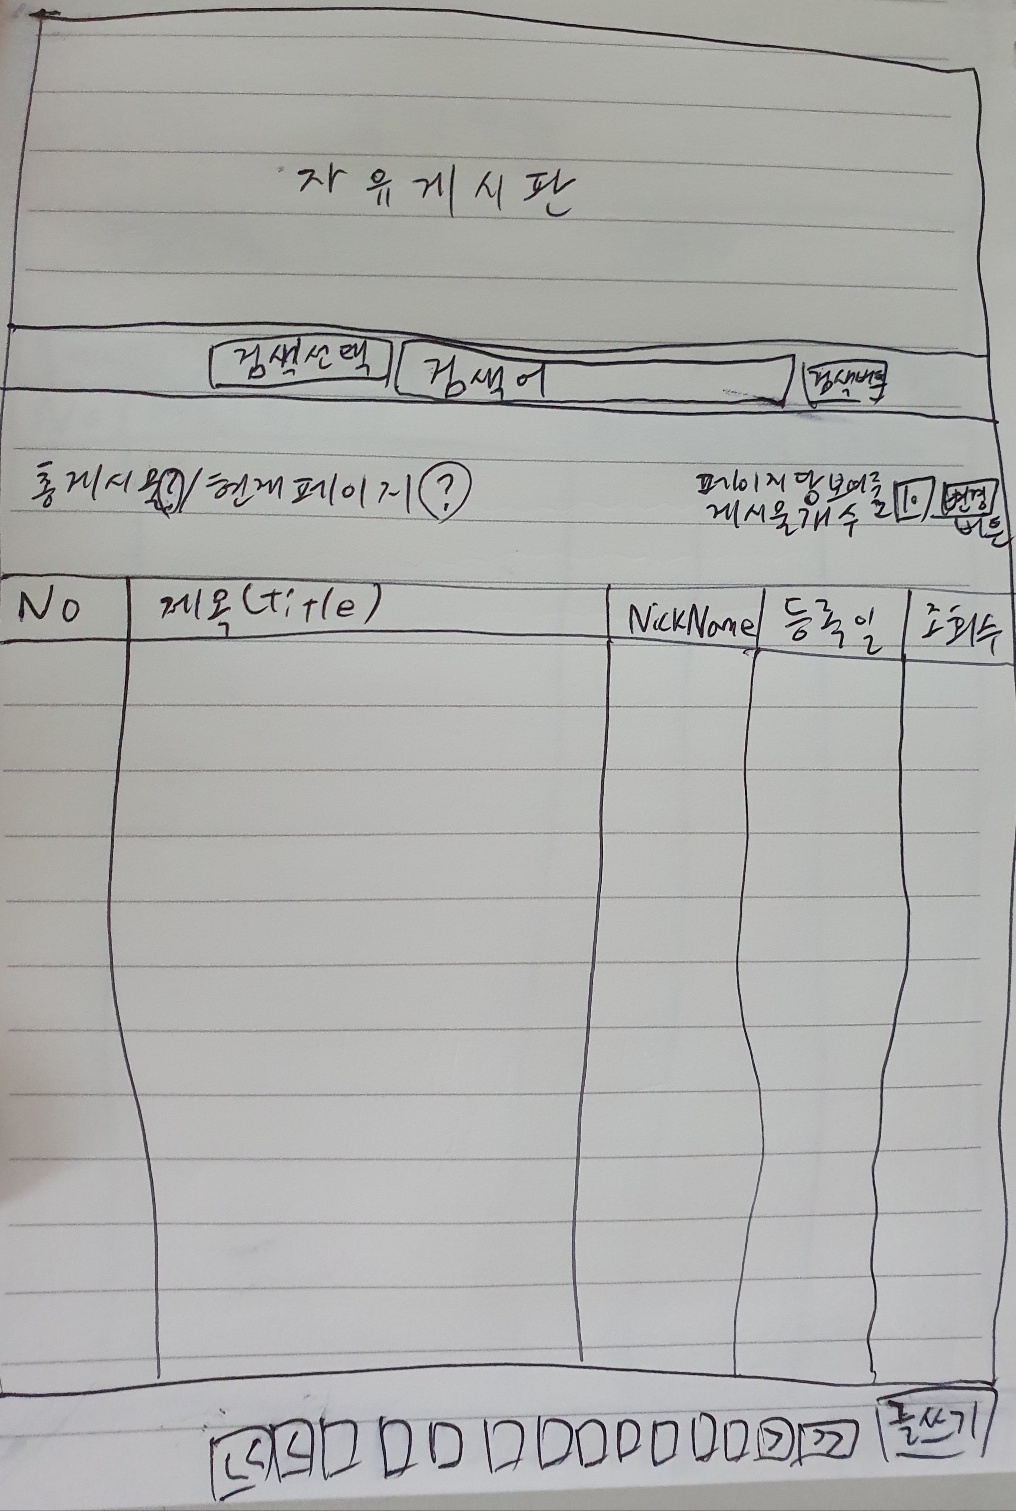 자유게시판
검색선택 검색어 검색버튼
총게시물(?)/현재페이지(?) 페이지당보여줄
게시물개수 10 변경
버튼
No 제목(title) NickName 등록일 조회수
<< < > >> 글쓰기